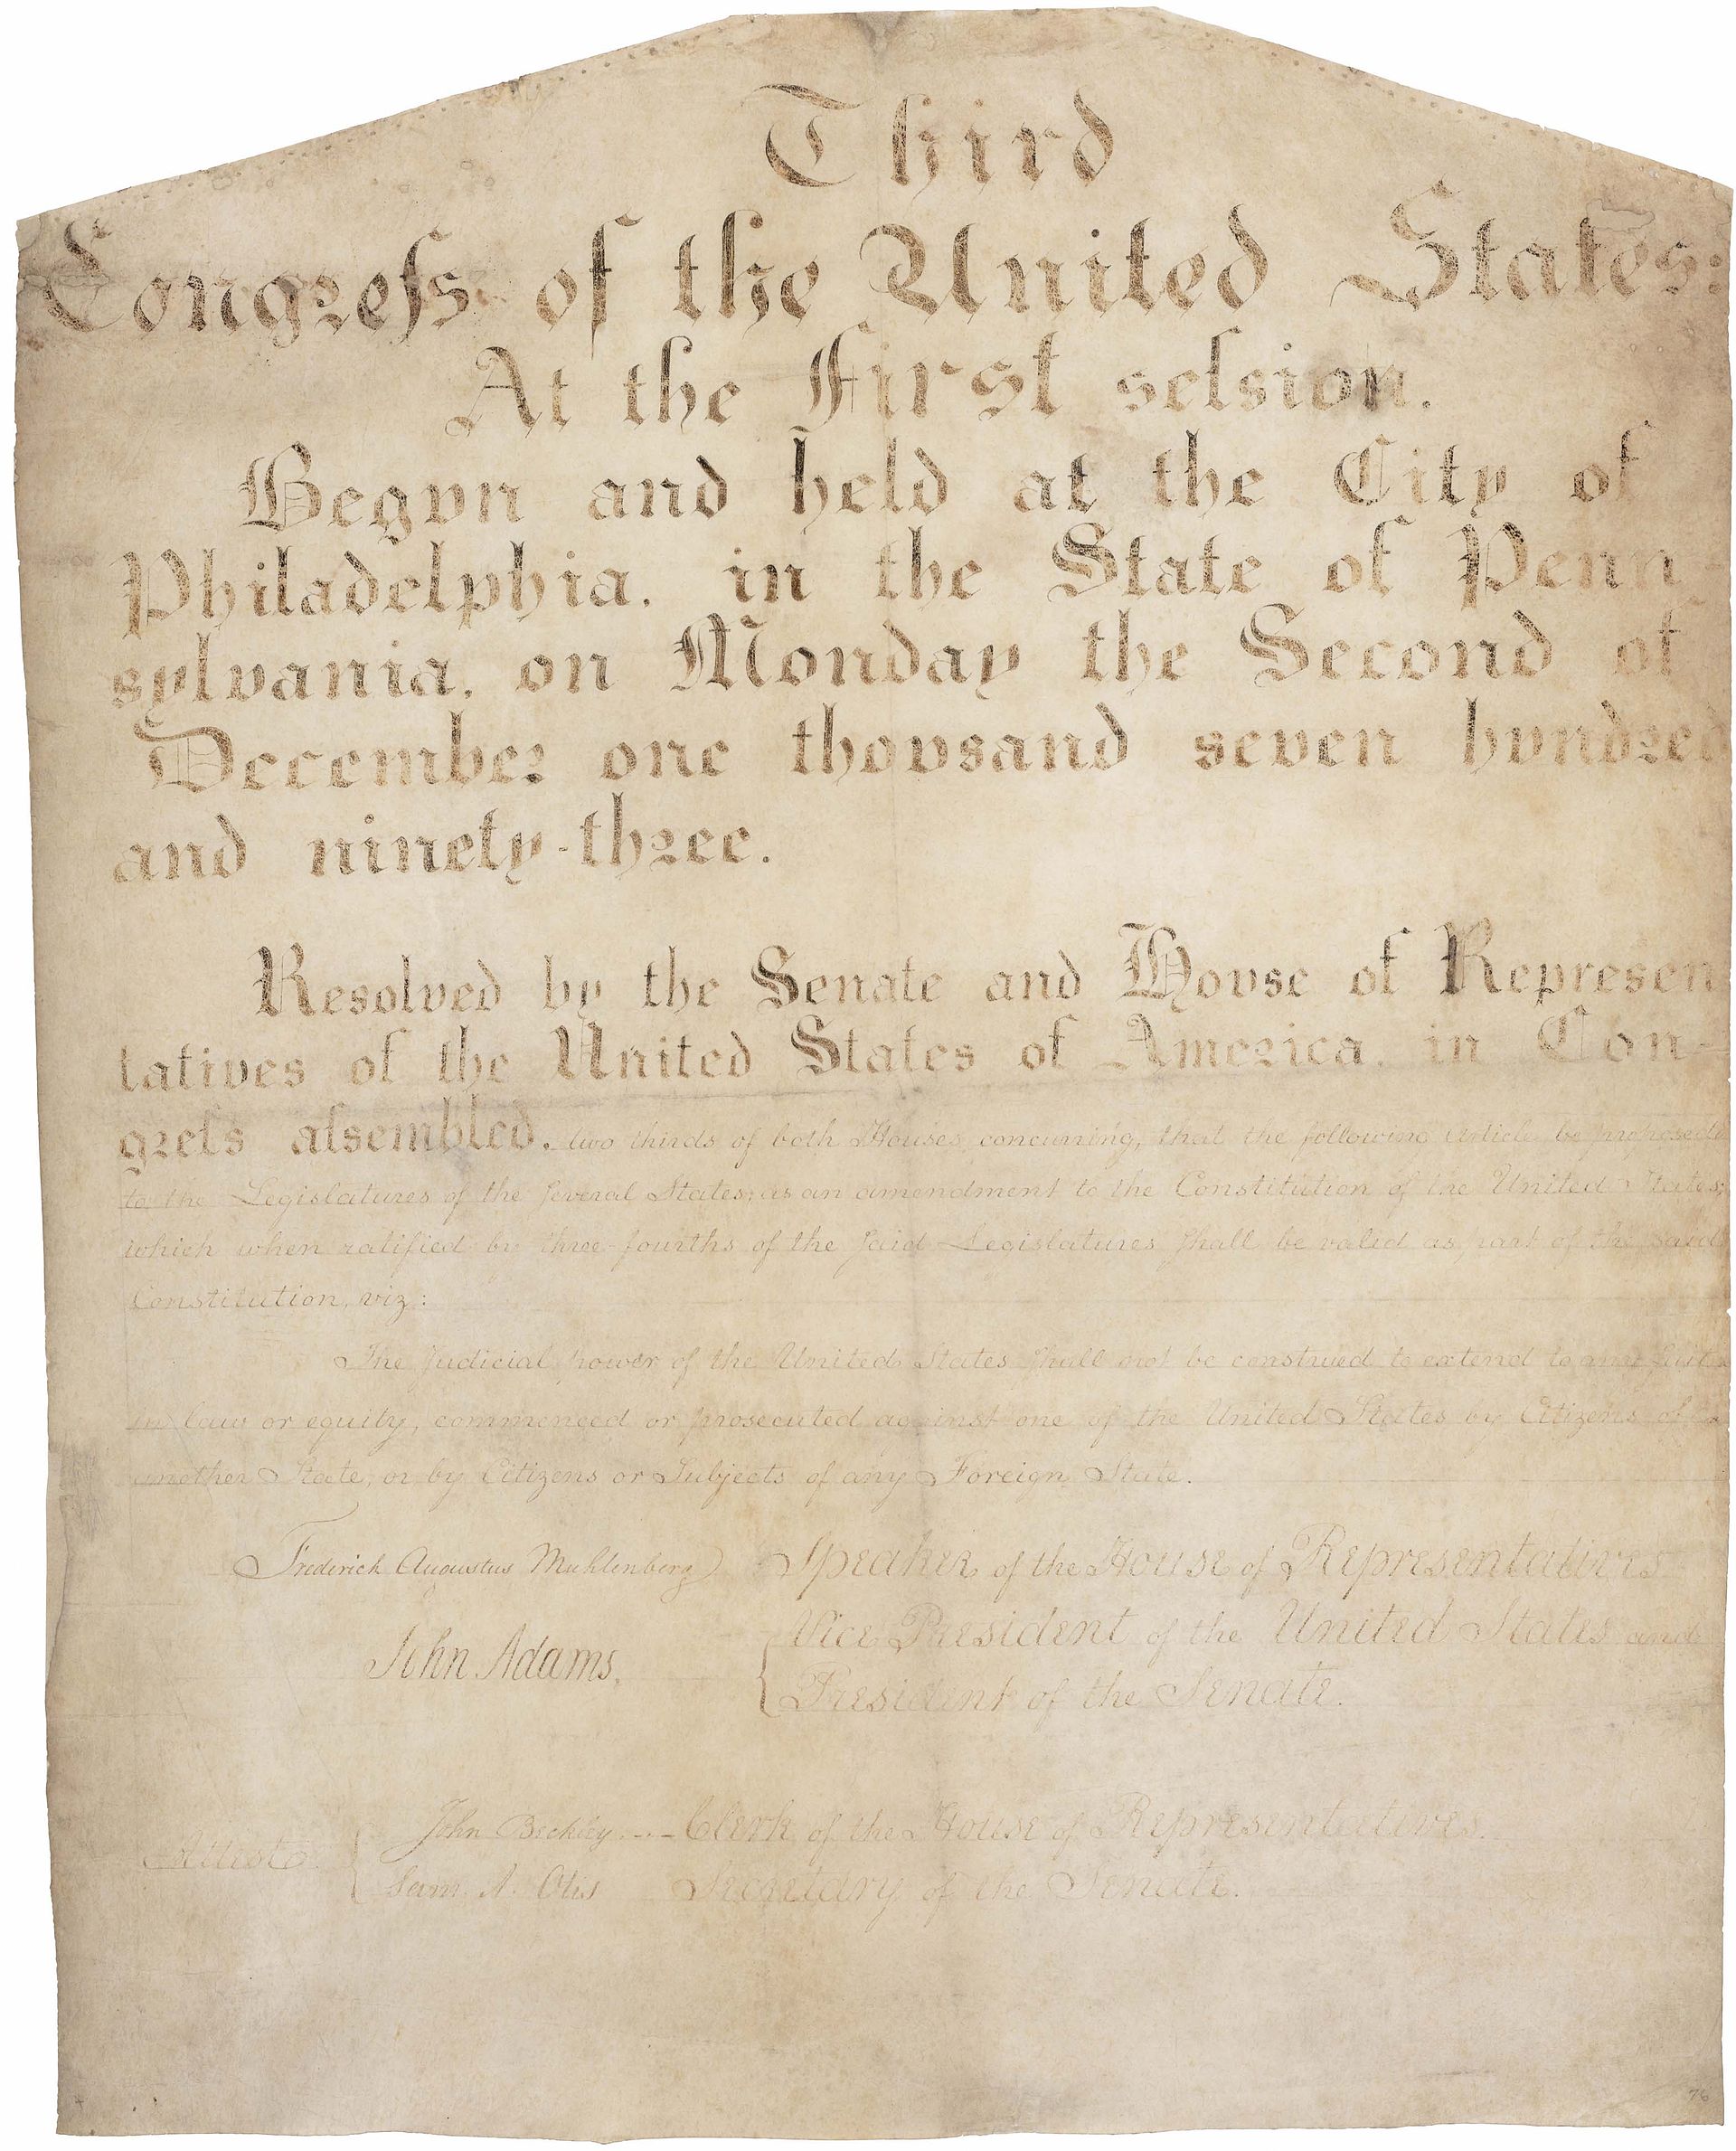 Third
Congreſs of the United States:
At the First seſsion.
Begvn and held at the City of
Philadelphia, in the State of Penn
sylvania, on Monday the Second of
December one thovsand seven hvndred
and ninety-three.
Resolved by the Senate and Hovse of Represen
tatives of the United States of America, in Con-
greſs aſsembled, two thirds of both Houses concurring, that the following article be proposed
to the Legislatures of the ſeveral States, as an amendment to the Constitution of the United States;
which when ratified by three-fourths of the ſaid Legislatures ſhall be valid as part of the said
Constitution, viz:
The Judicial power of the United States ſhall not be construed to extend to any ſuit
in law or equity, commenced or prosecuted against one of the United States by Citizens of
another State, or by Citizens or Subjects of any Foreign State.
Frederick Augustus Muhlenberg Speaker of the House of Representatives
John Adams, Vice President of the United States and
President of the Senate.
Attest John Beckley - - - Clerk of the House of Representatives.
Sam. A. Otis Secretary of the Senate.
76